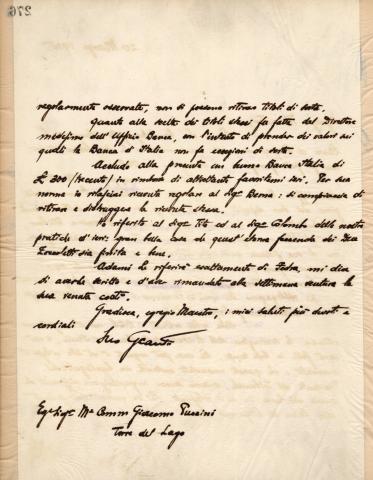 276
regolarmente osservate, non si possono ritirare titoli di sorta.
Quanto alla scelta di titoli stessi fu fatta dal Direttore
medesimo dell'Ufficio Banca, con l'intento di prender dei valori sui
quali la Banca d'Italia non fa eccezioni di sorta.
Accludo alla presente un buono Banca Italia di
£ 300/trecento/ in rimborso di altrettante favoritemi ieri. Per sua
norma io rilasciai ricevuta regolare al Sigr Berna: si compiaccia di
ritirare e distruggere la ricevuta stessa.
Ho riferito al Sigr Tito ed al Sigr Colombo delle nostre
pratiche d'ieri: gran bella cosa se quest'
sia finita e bene.
Adami Le riferirà esattamente di Fedra, mi dice
di averle scritto e d'aver rimandato alla settimana ventura la
sua venuta costì.
Gradisca, egregio Maestro, i miei saluti più devoti e
cordiali
Egr Sigr Mo Comm Giacomo Puccini
Torre del Lago